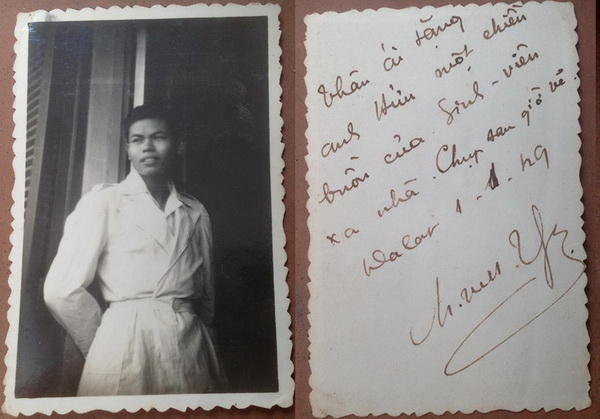 Thân ái tặng
anh Hiền một chiều
buồn của Sinh-viên
xa nhà. Chụp sau giờ về.
Dalat 1-1-49